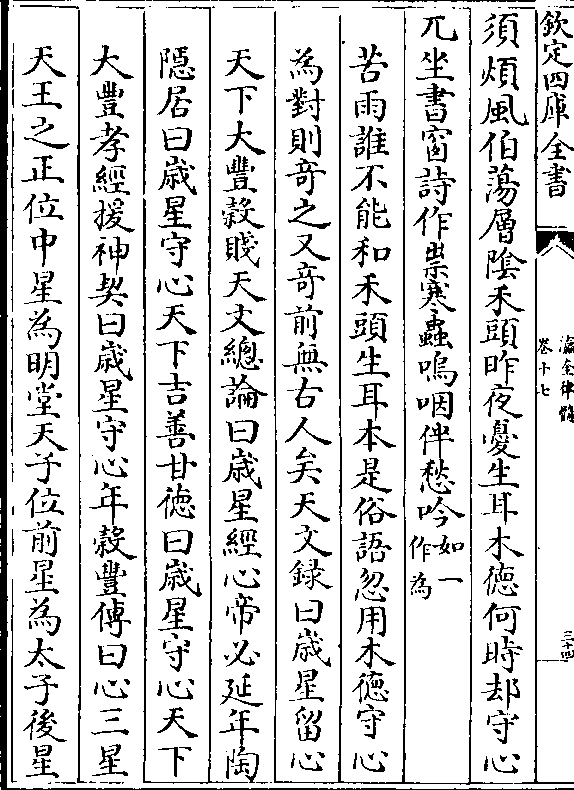 欽定四庫全書
瀛奎律髓
卷十七
三十四
須煩風伯蕩層陰禾頭昨夜憂生耳木徳何時却守心
兀坐書窗詩作祟寒蟲嗚咽伴愁吟如一
作為
苦雨誰不能和禾頭生耳本是俗語忽用木徳守心
為對則竒之又竒前無古人矣天文録曰歳星留心
天下大豐穀賤天文總論曰歳星經心帝必延年陶
隠居曰歳星守心天下吉善甘徳曰歳星守心天下
大豐孝經援神契曰歳星守心年穀豐傳曰心三星
天王之正位中星為明堂天子位前星為太子後星